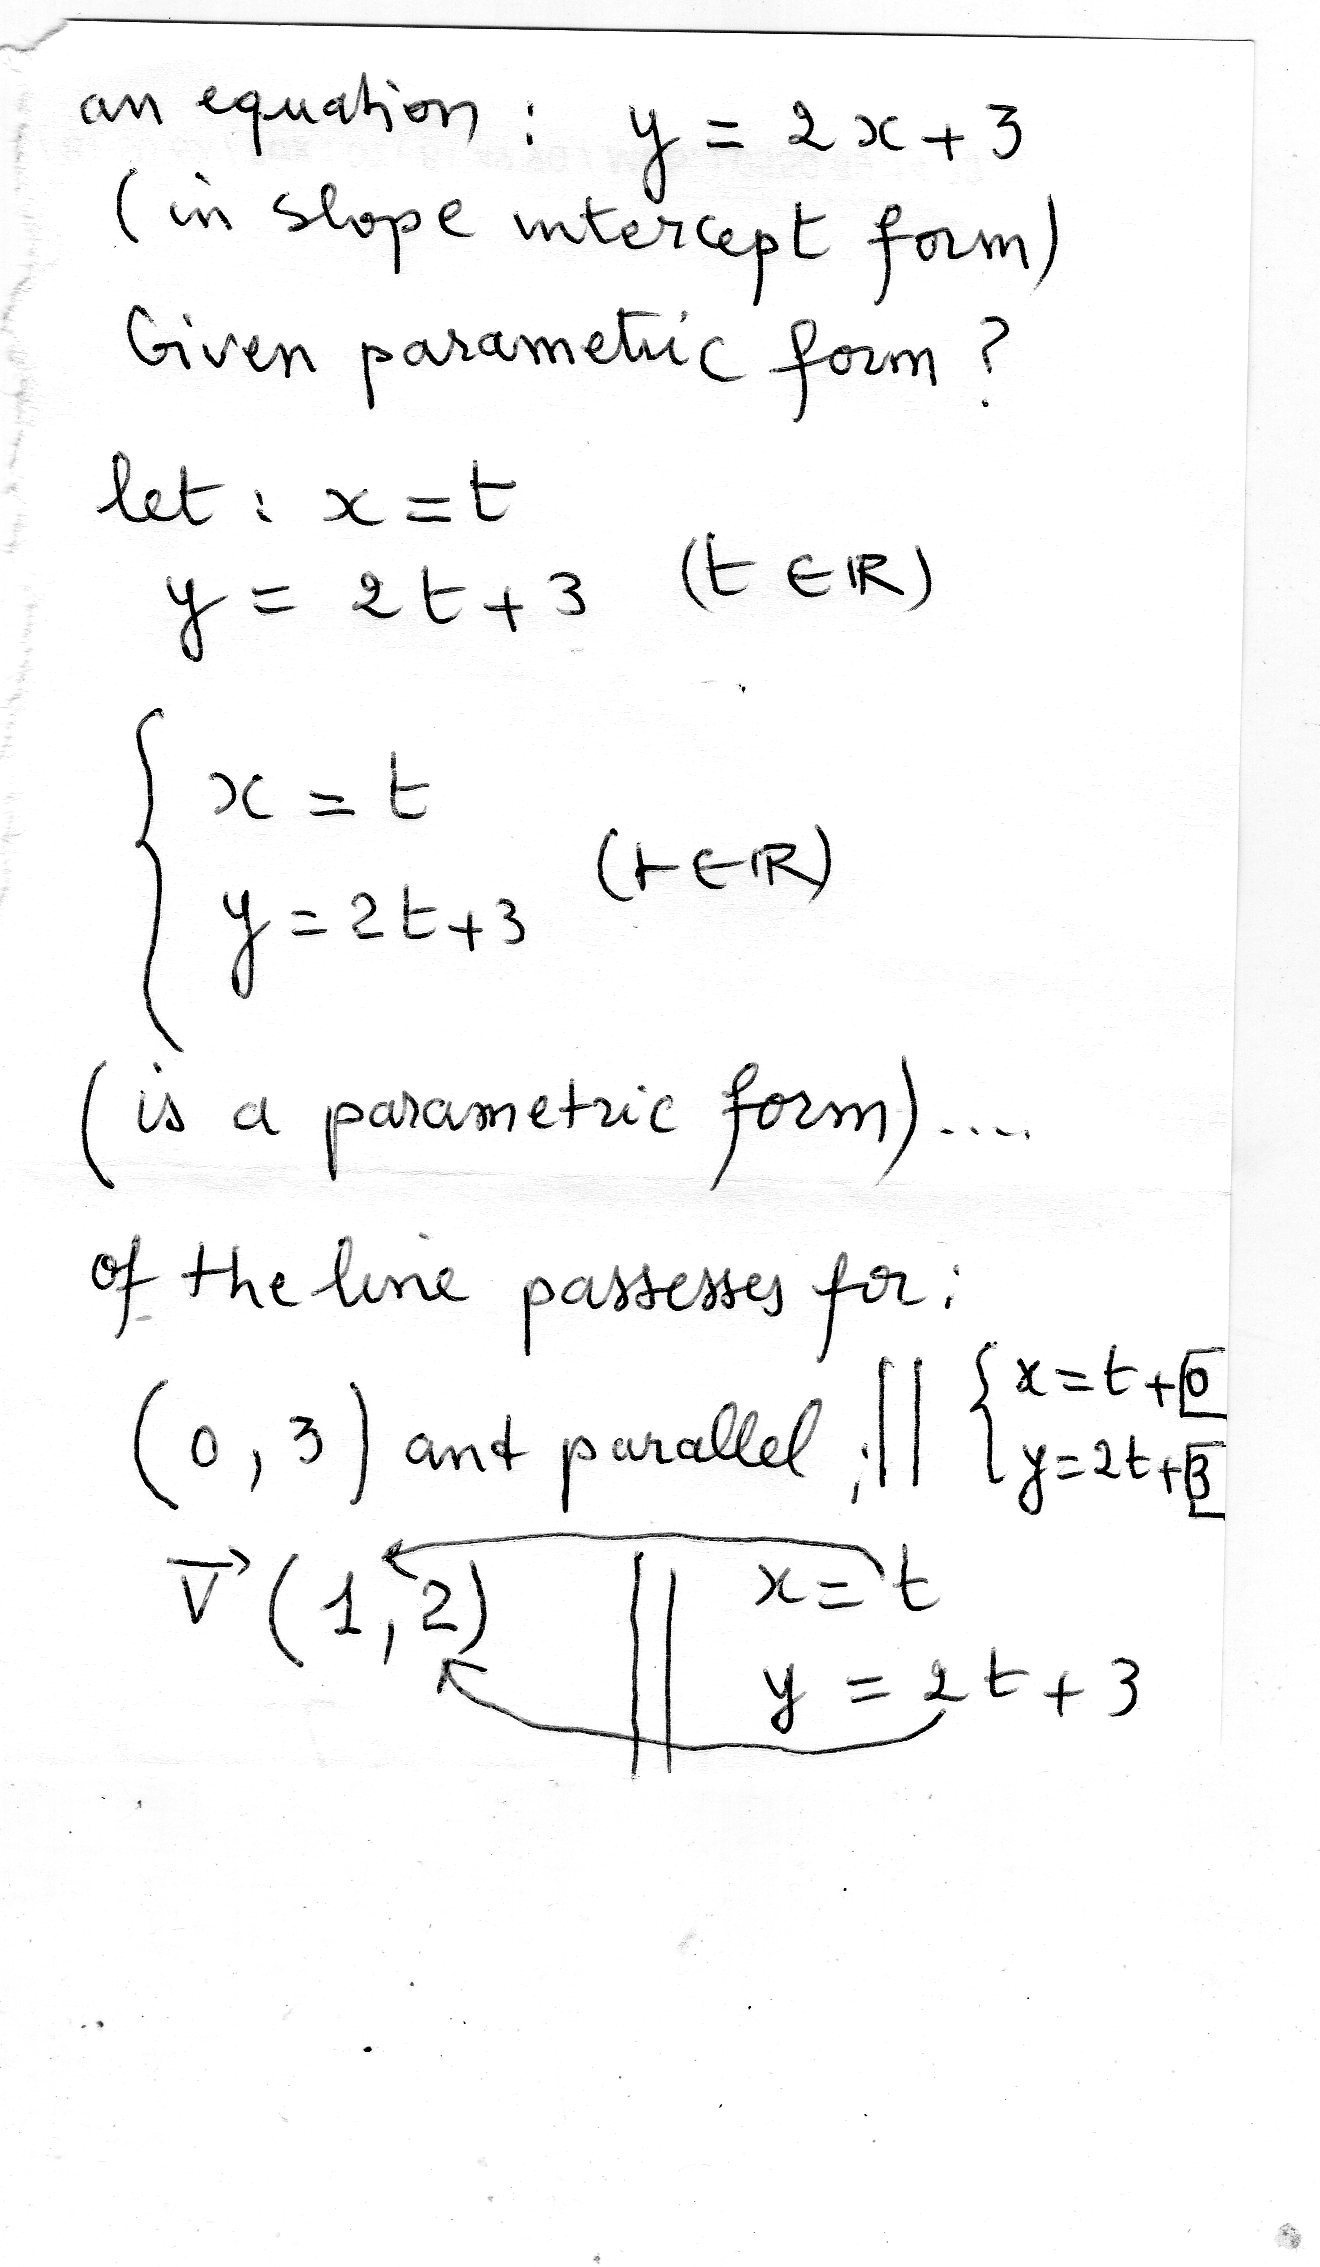 an equation : y = 2x+3
(in slope intercept form)
Given parametric form ?
let : x=t
y = 2t+3 (t ∈ ℝ)
{ x = t
y = 2t+3 (t ∈ ℝ)
(is a parametric form)....
of the line passesses for :
(0, 3) and parallel ; || { x=t+0
y=2t+3
V⃗ (1, 2) || x=t
y = 2t+3